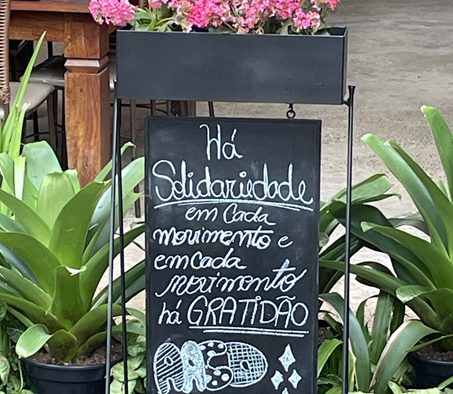 Há
Solidariedade
em Cada
movimento e
em cada
movimento
há GRATIDÃO